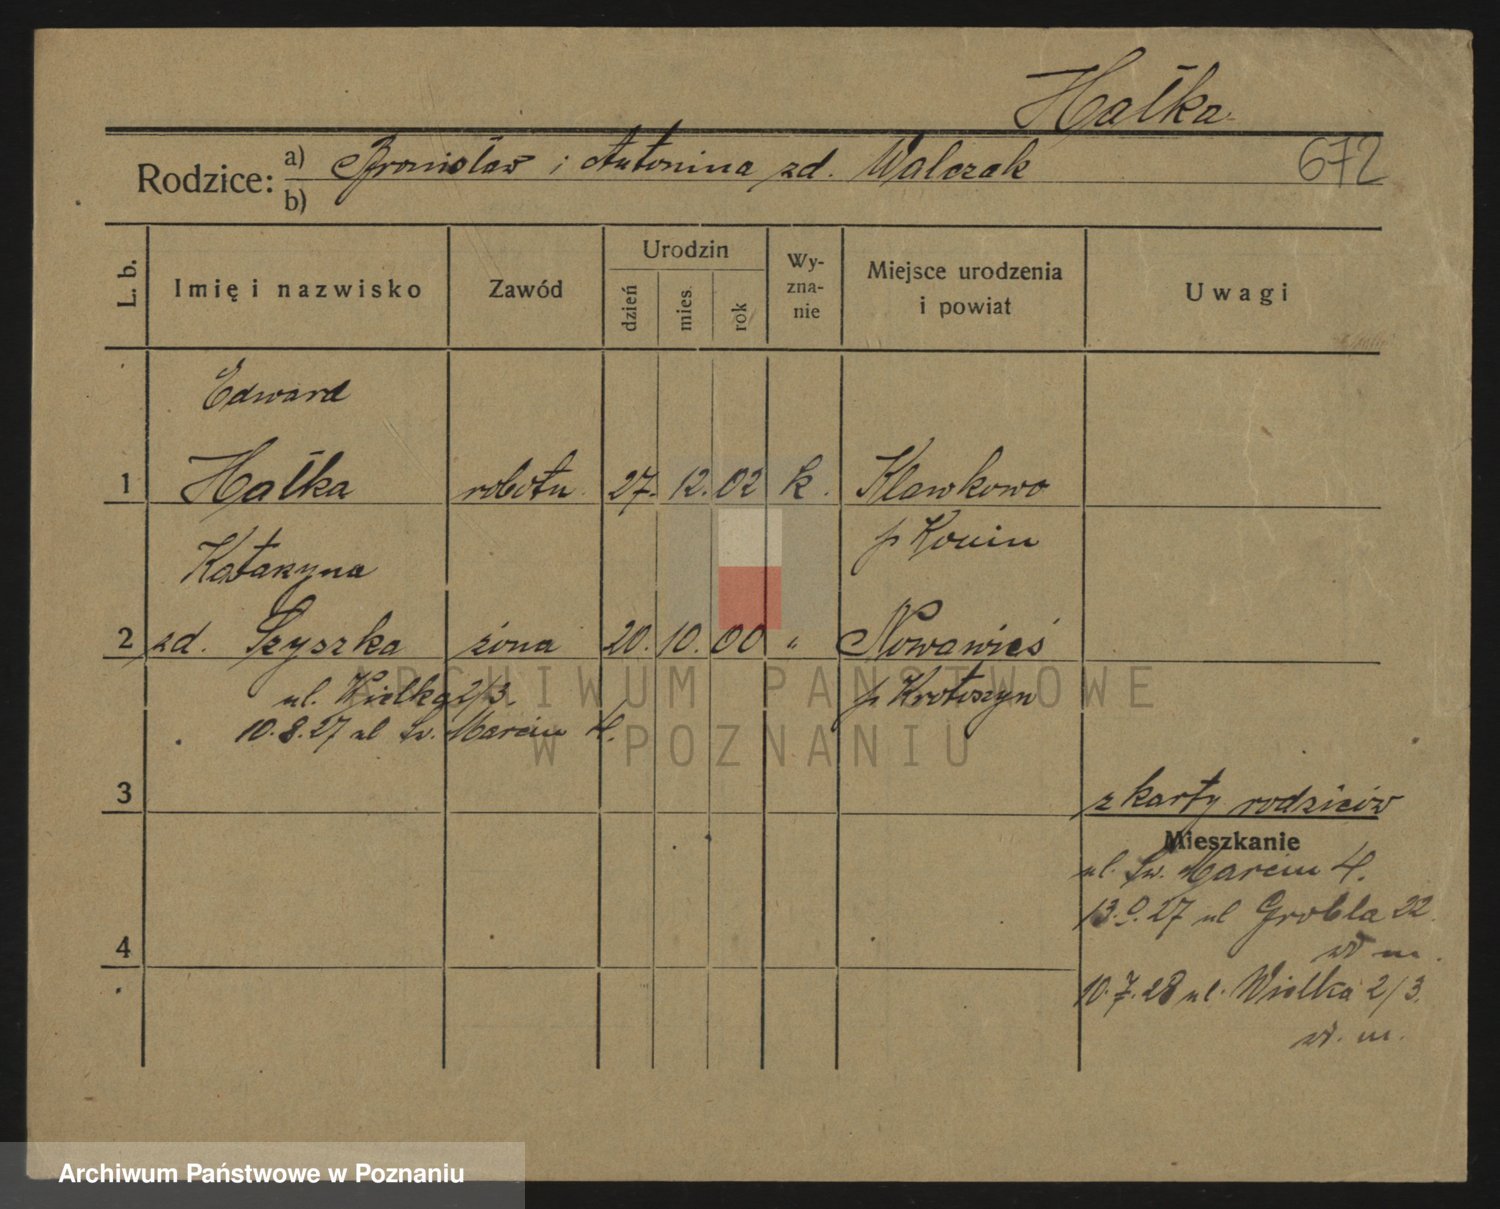 Hałka
Rodzice: a) Bronisław i Antonina zd. Walczak
b)
672
L. b. Imię i nazwisko Zawód Urodzin dzień mies. rok Wy-zna-nie Miejsce urodzenia i powiat Uwagi
Edward
1 Hałka robotn. 27. 12. 02 k. Kławkowo
p Konin
Katarzyna
2 zd. Szyszka żona 20. 10. 00 " Nowawieś
p Krotoszyn
ul. Wielka 2/3.
10.8.27 ul Św. Marcin 4.
3
z karty rodziców
Mieszkanie
ul. Św. Marcin 4.
ul Grobla 22
w m.
4
10.7.28 ul. Wielka 2/3.
w. m.
ARCHIWUM PAŃSTWOWE
W POZNANIU
Archiwum Państwowe w Poznaniu